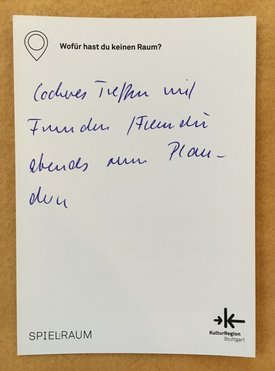 Wofür hast du keinen Raum?
lockeres Treffen mit
Freunden / Freundin
abends zum Plau-
dern
SPIEL:RAUM
KulturRegion
Stuttgart